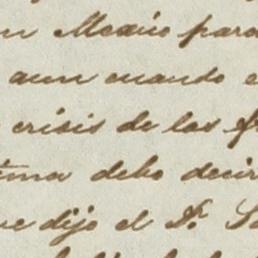 en Mexico para
aun cuando e
crisis de las f
ima debo decir
ue dijo el Dr. Sa